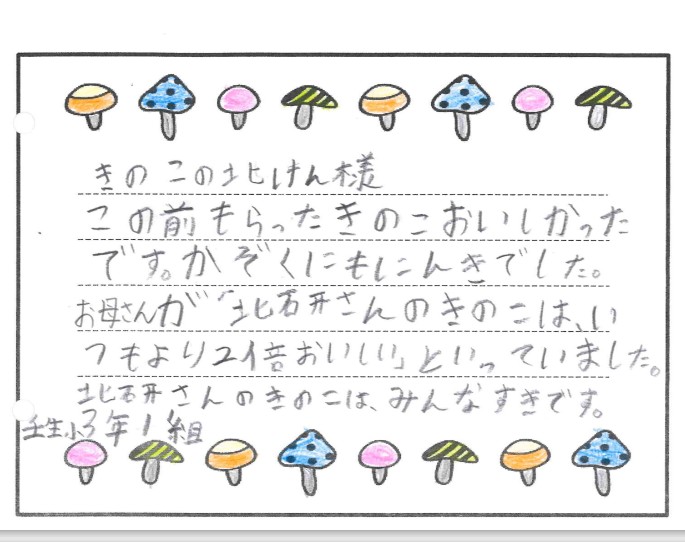 きのこの北けん様
この前もらったきのこおいしかった
です。かぞくにもにんきでした。
お母さんが「北石开さんのきのこは、い
つもより2倍おいしい」といっていました。
北石开さんのきのこは、みんなすきです。
壬生小3年1組